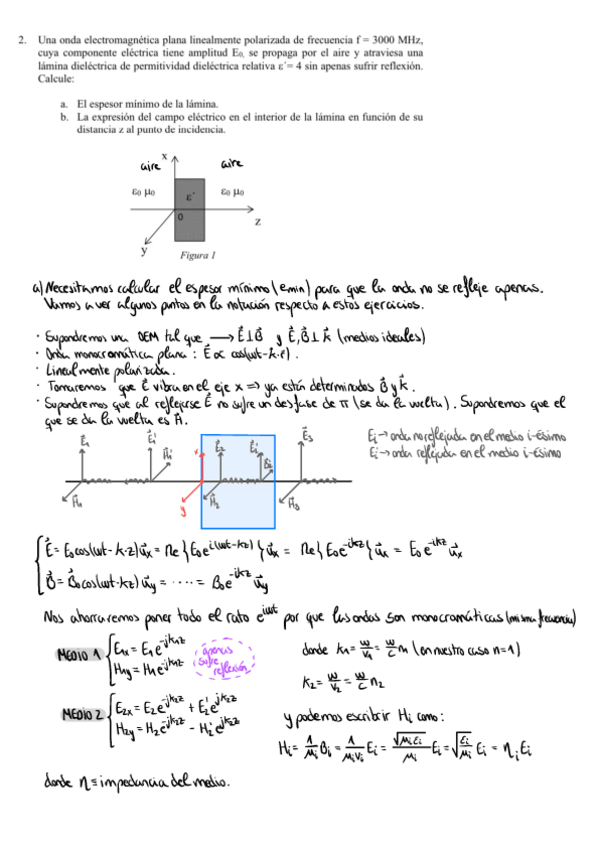 2. Una onda electromagnética plana linealmente polarizada de frecuencia f = 3000 MHz,
cuya componente eléctrica tiene amplitud E₀, se propaga por el aire y atraviesa una
lámina dieléctrica de permitividad dieléctrica relativa ε´= 4 sin apenas sufrir reflexión.
Calcule:
a. El espesor mínimo de la lámina.
b. La expresión del campo eléctrico en el interior de la lámina en función de su
distancia z al punto de incidencia.
aire x aire
ε₀ μ₀ ε´ ε₀ μ₀
0
z
y
Figura 1
a) Necesitamos calcular el espesor mínimo (emin) para que la onda no se refleje apenas.
Vamos a ver algunos puntos en la notación respecto a estos ejercicios.
· Supondremos una OEM tal que ⟶ E⃗⊥B⃗ y E⃗,B⃗⊥k⃗ (medios ideales)
· Onda monocromática plana : E⃗ ∝ cos(wt-k·r).
· Linealmente polarizada.
· Tomaremos que E⃗ vibra en el eje x ⇒ ya están determinados B⃗ y k⃗.
· Supondremos que al reflejarse E⃗ no sufre un desfase de π (se da la vuelta). Supondremos que el
que se da la vuelta es H⃗.
E⃗₁ E⃗₁' H⃗₁' x E⃗₂ E⃗₂' E⃗₃
H⃗₁ y H⃗₂ H⃗₃
Ei → onda no reflejada en el medio i-ésimo
Ei' → onda reflejada en el medio i-ésimo
E⃗ = E₀cos(wt-k·z)u⃗x = Re{E₀e^i(wt-kz)}u⃗x = Re{E₀e^-ikz}u⃗x = E₀e^-ikz u⃗x
B⃗ = B₀cos(wt-kz)u⃗y = ····· = B₀e^-ikz u⃗y
Nos ahorraremos poner todo el rato e^iwt por que las ondas son monocromáticas (misma frecuencia)
MEDIO 1 { E₁x = E₁e^-jk₁z
H₁y = H₁e^-jk₁z
apenas
sufre
reflexión
donde k₁ = w/v₁ = w/c n₁ (en nuestro caso n=1)
k₂ = w/v₂ = w/c n₂
MEDIO 2 { E₂x = E₂e^-jk₂z + E₂'e^jk₂z
H₂y = H₂e^-jk₂z - H₂'e^jk₂z
y podemos escribir Hi como:
Hi = 1/μi Bi = 1/μivi Ei = √μiεi/μi Ei = √εi/μi Ei = ηiEi
donde η ≡ impedancia del medio.